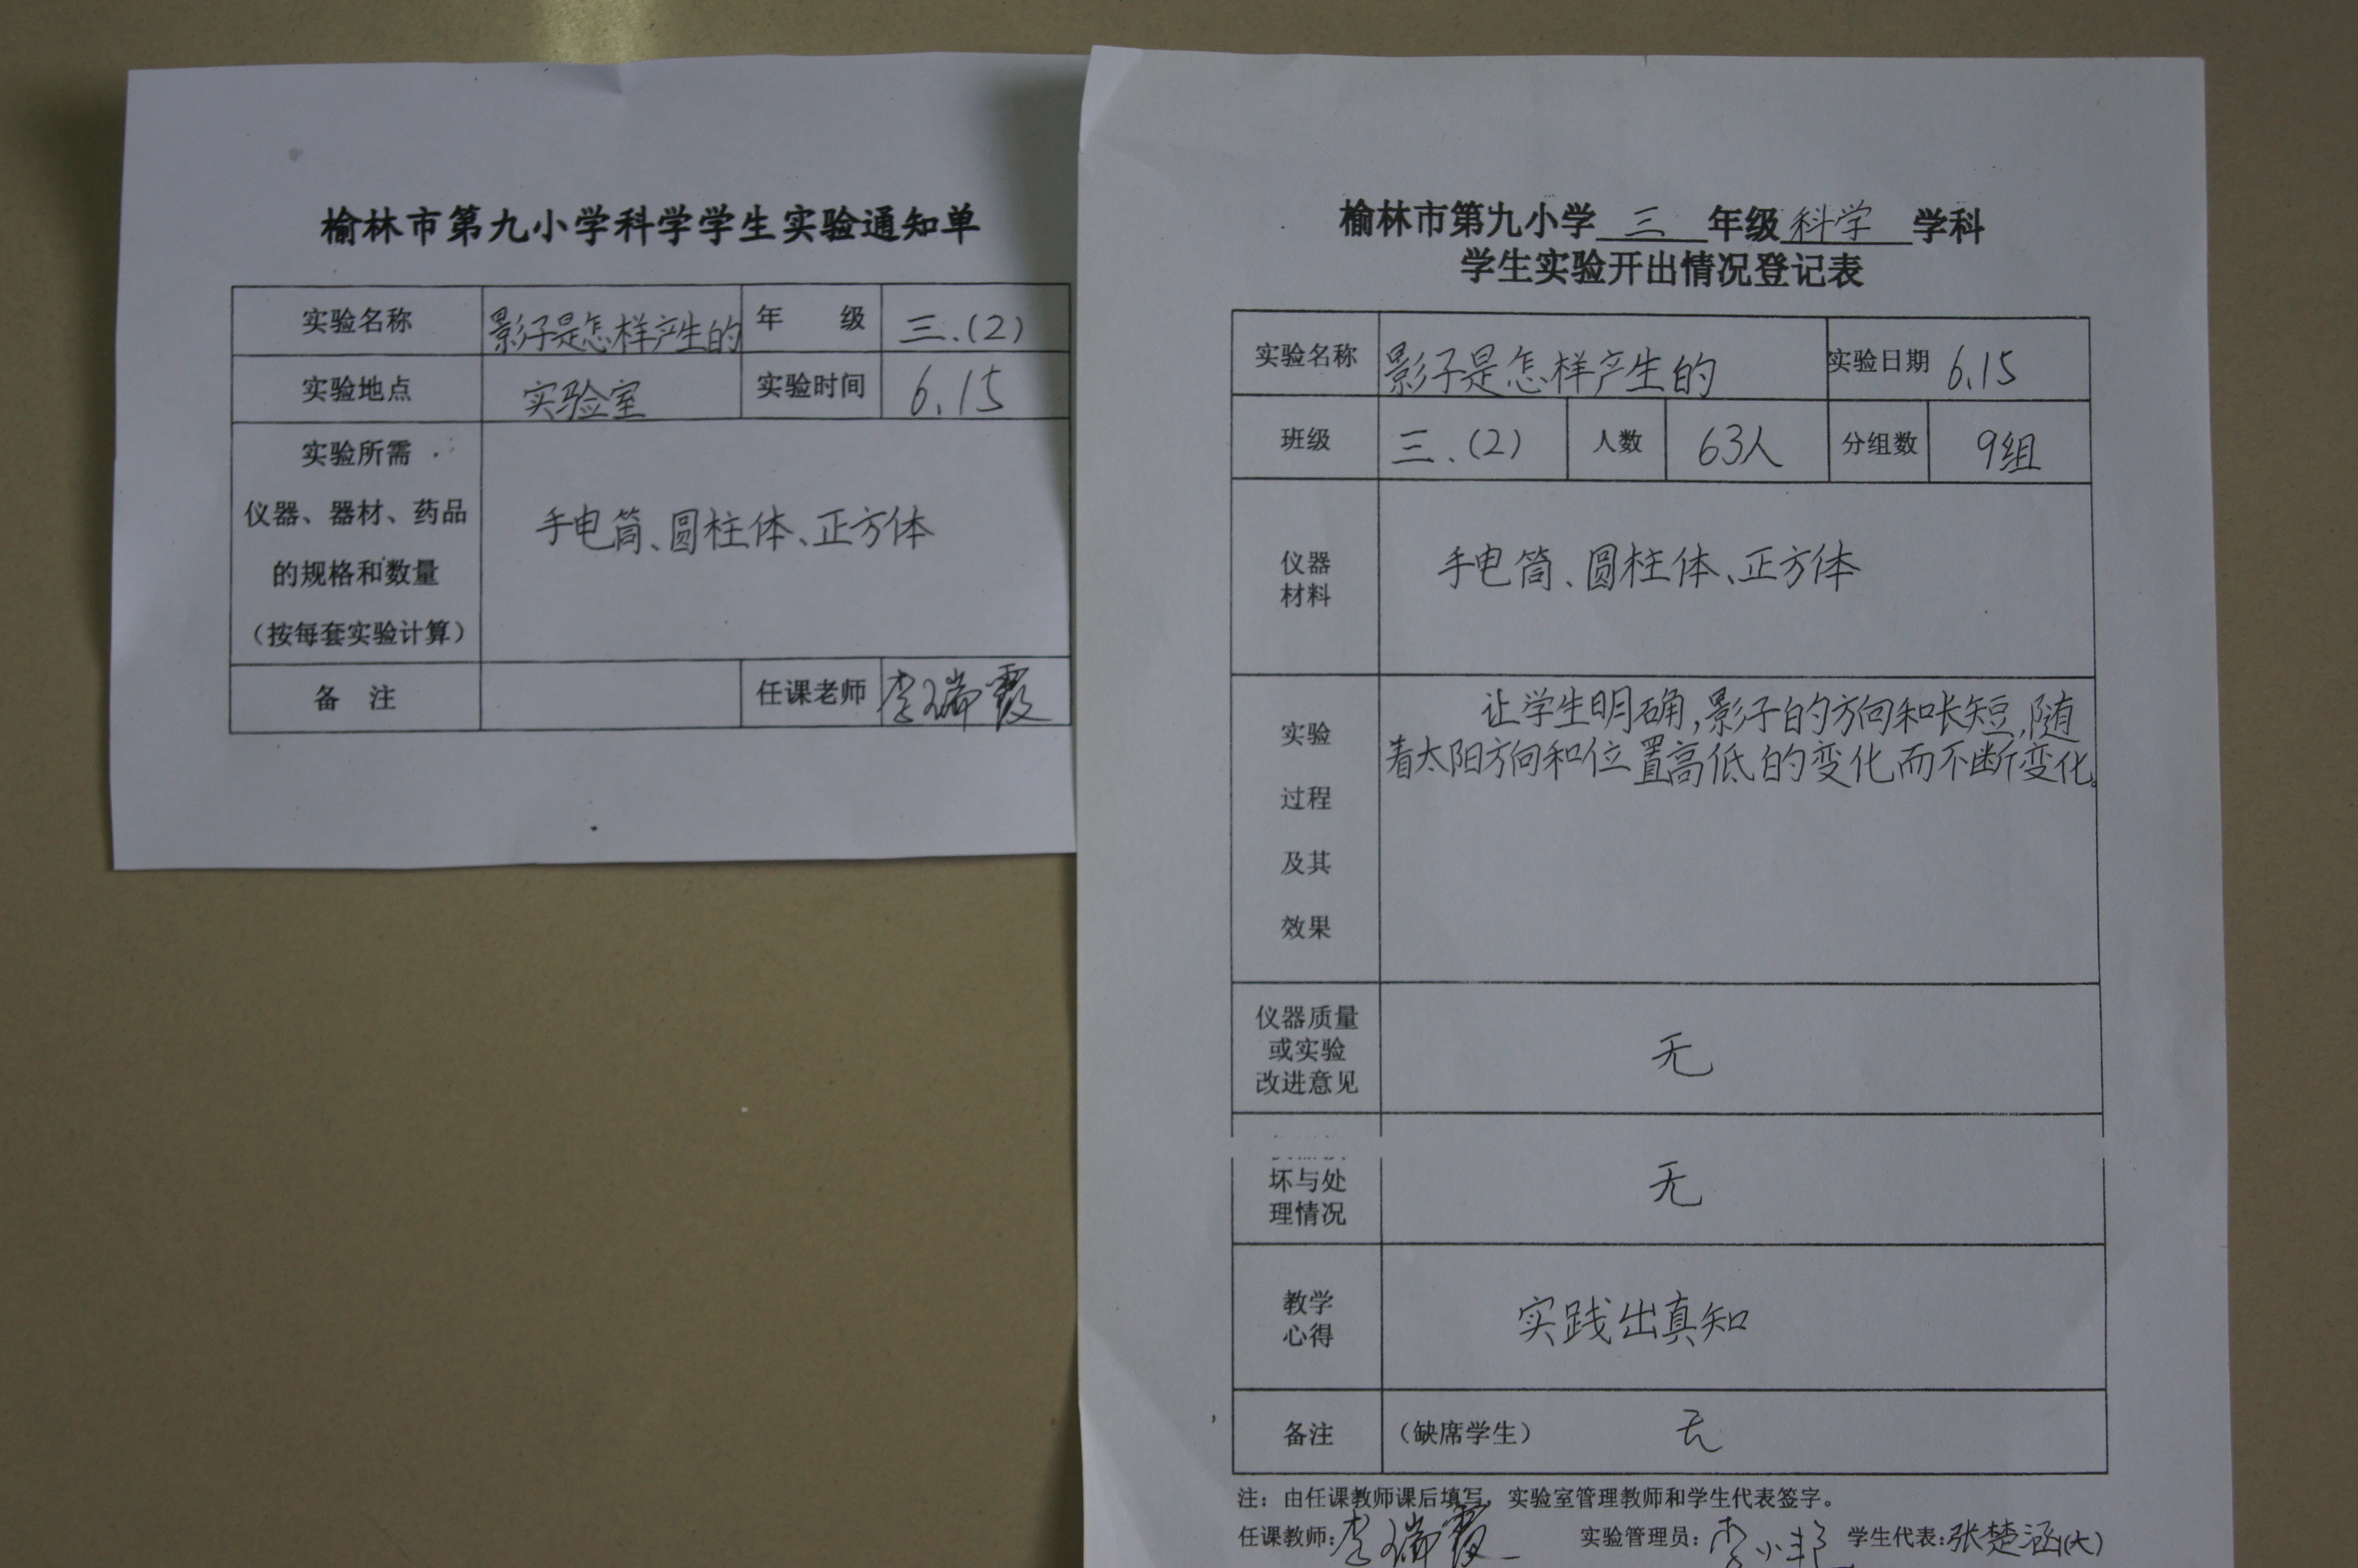 榆林市第九小学科学学生实验通知单
实验名称 影子是怎样产生的 年 级 三.(2)
实验地点 实验室 实验时间 6.15
实验所需
仪器、器材、药品
的规格和数量
（按每套实验计算）
手电筒、圆柱体、正方体
备 注 任课老师 李瑞霞
榆林市第九小学 三 年级 科学 学科
学生实验开出情况登记表
实验名称 影子是怎样产生的 实验日期 6.15
班级 三.(2) 人数 63人 分组数 9组
仪器
材料
手电筒、圆柱体、正方体
实验
过程
及其
效果
让学生明确,影子的方向和长短,随
着太阳方向和位置高低的变化而不断变化。
仪器质量
或实验
改进意见
无
坏与处
理情况
无
教学
心得
实践出真知
备注 （缺席学生） 无
注：由任课教师课后填写，实验室管理教师和学生代表签字。
任课教师: 李瑞霞 实验管理员: 学生代表: 张楚涵(大)